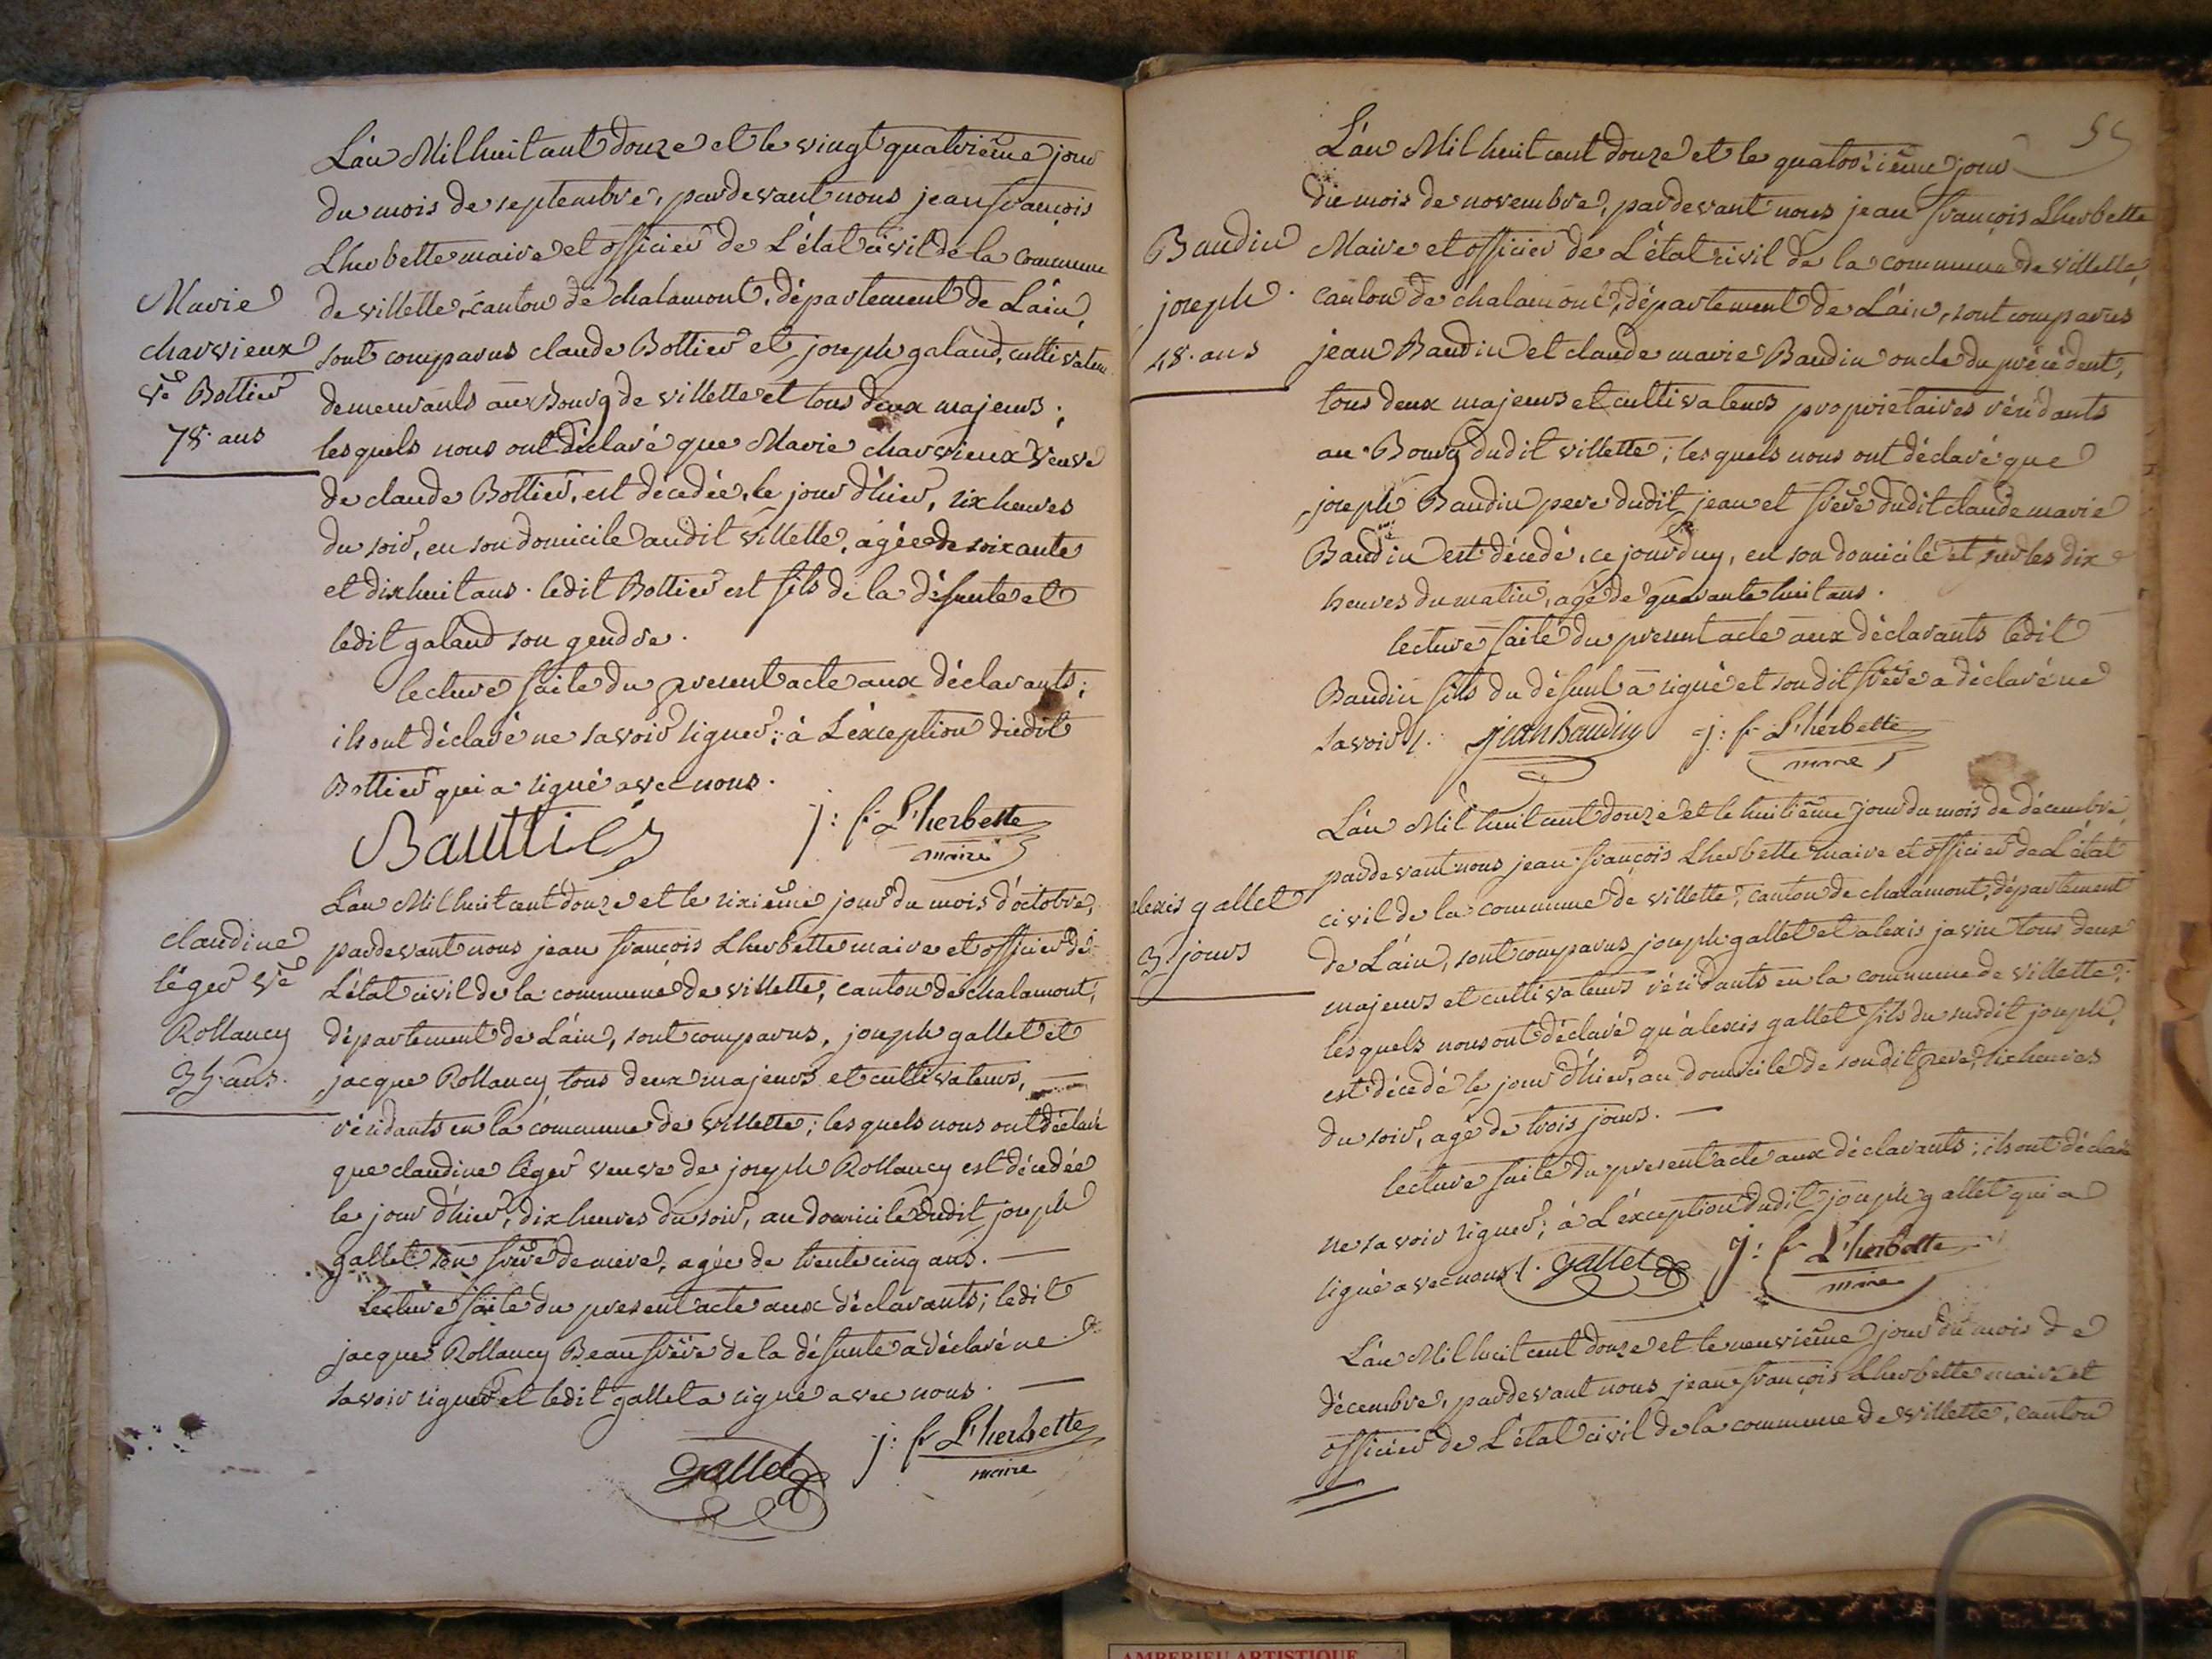 L'an Mil huit cent douze et le vingt quatrième jour
du mois de septembre, pardevant nous jean françois
Lherbette maire et officier de L'état civil de la commune
de villette, canton de chalamont, département de L'ain,
sont comparus claude Bottier et joseph galand, cultivateurs
demeurants au Bourg de villette et tous deux majeurs;
lesquels nous ont déclaré que Marie charvieux veuve
de claude Bottier, est décedée, le jour d'hier, six heures
du soir, en son domicile audit villette, agée de soixante
et dix huit ans. ledit Bottier est fils de la défunte et
ledit galand son gendre.
lecture faite du present acte aux déclarants;
ils ont déclaré ne savoir signer; à L'éxception dudit
Bottier qui a signé avec nous.
Bauttier
j: f L'herbette
maire
Marie
charvieux
ve Bottier
78 ans
L'an Mil huit cent douze et le sixième jour du mois d'octobre,
pardevant nous jean françois Lherbette maire et officier de
L'état civil de la commune de villette, canton de chalamont,
département de L'ain, sont comparus, joseph gallet et
jacque Rollancy, tous deux majeurs et cultivateurs,
résidants en la commune de villette; lesquels nous ont déclaré
que claudine léger veuve de joseph Rollancy est décedée
le jour d'hier, dix heures du soir, au domicile dudit joseph
gallet son frère de mère, agée de trente cinq ans.
Lecture faite du present acte aux déclarants; ledit
jacque Rollancy Beaufrère de la défunte a déclaré ne
savoir signer et ledit gallet a signé avec nous.
gallet
j: f L'herbette
maire
claudine
léger ve
Rollancy
35 ans.
55
L'an Mil huit cent douze et le quatorzième jour
du mois de novembre, pardevant nous jean françois Lherbette
Maire et officier de L'état civil de la commune de villette,
canton de chalamont, département de L'ain, sont comparus
jean Baudin et claude marie Baudin oncle du précédent,
tous deux majeurs et cultivateurs propriétaires résidants
au Bourg dudit villette; lesquels nous ont déclaré que
joseph Baudin pere dudit jean et frère dudit claude marie
Baudin est décedé, ce jourduy, en son domicile et sur les dix
heures du matin, agé de quarante huit ans.
lecture faite du present acte aux déclarants ledit
Baudin fils du défunt a signé et son dit frère a déclaré ne
savoir /.
jean Baudin
j: f L'herbette
maire
Baudin
joseph
48 ans
L'an Mil huit cent douze et le huitième jour du mois de décembre,
pardevant nous jean françois Lherbette maire et officier de L'état
civil de la commune de villette, canton de chalamont, département
de L'ain, sont comparus joseph gallet et alexis javin tous deux
majeurs et cultivateurs résidants en la commune de villette;
lesquels nous ont déclaré qu'alexis gallet fils du susdit joseph,
est décedé le jour d'hier, au domicile de son dit pere, six heures
du soir, agé de trois jours.
lecture faite du present acte aux déclarants; ils ont déclaré
ne savoir signer; à L'éxception dudit joseph gallet qui a
signé avec nous /.
gallet
j: f L'herbette
maire
alexis gallet
3 jours
L'an Mil huit cent douze et le neuvième jour du mois de
décembre, pardevant nous jean françois Lherbette maire et
officier de L'état civil de la commune de villette, canton
AMBERIEU ARTISTIQUE